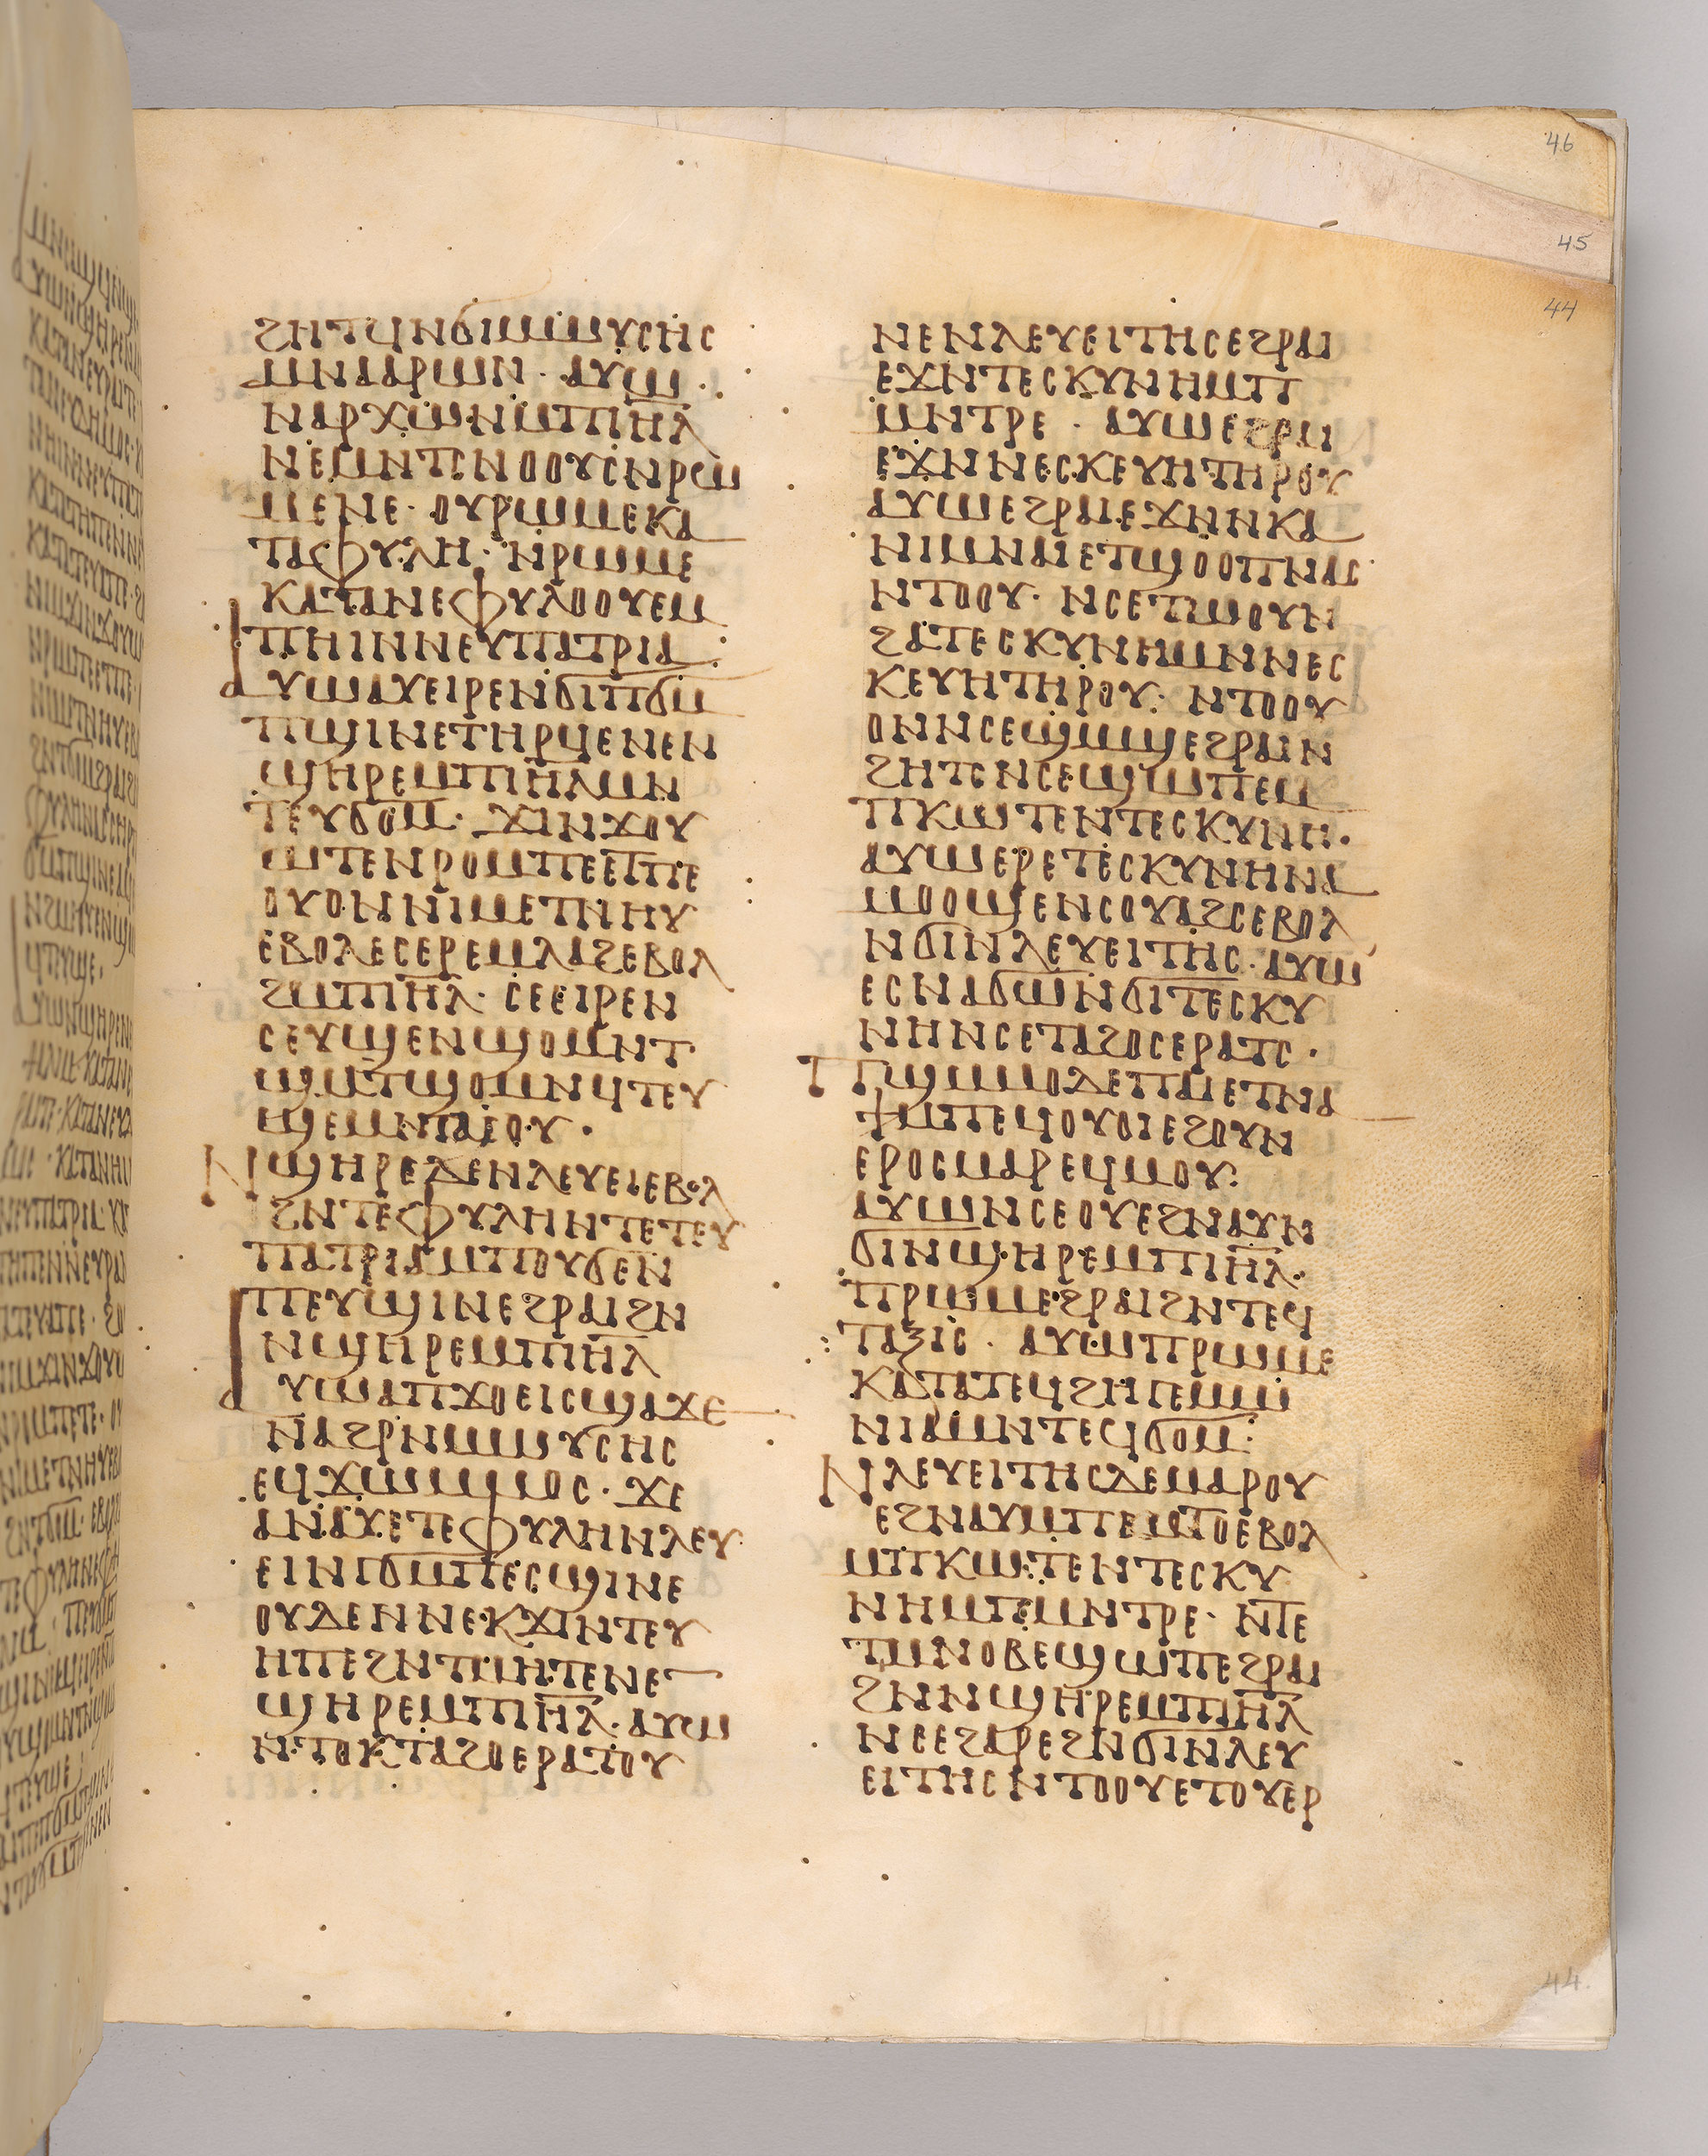 ϩⲏⲧϥⲛϭⲓⲙⲱⲩⲥⲏⲥ
ⲙⲛⲁⲁⲣⲱⲛ· ⲁⲩⲱ·
ⲛⲁⲣⲭⲱⲛⲙⲡⲓⲏ̅ⲗ̅
ⲛⲉⲙⲛⲧⲥⲛⲟⲟⲩⲥⲛⲣⲱ
ⲙⲉⲛⲉ· ⲟⲩⲣⲱⲙⲉⲕⲁ
ⲧⲁⲫⲩⲗⲏ· ⲛⲣⲱⲙⲉ
ⲕⲁⲧⲁⲛⲉⲫⲩⲗⲟⲟⲩⲉⲙ
ⲡⲏⲓⲛⲛⲉⲩⲡⲁⲧⲣⲓⲁ:
ⲁⲩⲱⲁⲩⲉⲓⲣⲉⲛϭⲓⲡϭⲙ
ⲡϣⲓⲛⲉⲧⲏⲣϥⲉⲛⲉⲛ
ϣⲏⲣⲉⲙⲡⲓⲏ̅ⲗ̅ⲙⲛ
ⲧⲉⲩϭⲟⲙ· ϫⲓⲛϫⲟⲩ
ⲱⲧⲉⲛⲣⲟⲙⲡⲉⲉⲧⲡⲉ
ⲟⲩⲟⲛⲛⲓⲙⲉⲧⲛⲏⲩ
ⲉⲃⲟⲗⲉⲥⲉⲣⲉⲙⲗⲁϩⲉⲃⲟⲗ
ϩⲙⲡⲓⲏ̅ⲗ̅· ⲥⲉⲉⲓⲣⲉⲛ
ⲥⲉⲩϣⲉⲛϣⲟⲙⲛⲧ
ϣⲙⲧϣⲟⲙⲛϥⲧⲉⲩ
ⲏϣⲉⲙⲛⲧⲁⲓⲟⲩ·
ⲛϣⲏⲣⲉⲇⲉⲛⲗⲉⲩⲉⲓⲉⲃⲟⲗ
ϩⲛⲧⲉⲫⲩⲗⲏⲛⲧⲉⲧⲉⲩ
ⲡⲁⲧⲣⲓⲁⲙⲡⲟⲩϭⲉⲛ
ⲡⲉⲩϣⲓⲛⲉϩⲣⲁⲓϩⲛ
ⲛϣⲏⲣⲉⲙⲡⲓⲏ̅ⲗ̅
ⲁⲩⲱⲁⲡϫⲟⲉⲓⲥϣⲁϫⲉ
ⲛⲁϩⲣⲛⲙⲱⲩⲥⲏⲥ
ⲉϥϫⲱⲙⲙⲟⲥ· ϫⲉ
ⲁⲛⲁⲩⲉⲧⲉⲫⲩⲗⲏⲛⲗⲉⲩ
ⲉⲓⲛⲅϭⲙⲡⲉⲥϣⲓⲛⲉ
ⲟⲩⲇⲉⲛⲛⲉⲕϫⲓⲛⲧⲉⲩ
ⲏⲡⲉϩⲛⲧⲙⲏⲧⲉⲛⲉⲛ
ϣⲏⲣⲉⲙⲡⲓⲏ̅ⲗ̅· ⲁⲩⲱ
ⲛⲧⲟⲕⲧⲁϩⲟⲉⲣⲁⲧⲟⲩ
ⲛⲉⲛⲗⲉⲩⲉⲓⲧⲏⲥⲉϩⲣⲁⲓ
ⲉϫⲛⲧⲉⲥⲕⲩⲛⲏⲙⲡ
ⲙⲛⲧⲣⲉ· ⲁⲩⲱⲉϩⲣⲁⲓ
ⲉϫⲛⲛⲉⲥⲕⲉⲩⲏⲧⲏⲣⲟⲩ
ⲁⲩⲱⲉϩⲣⲁⲓⲉϫⲛⲛⲕⲁ
ⲛⲓⲙⲛⲁⲓⲉⲧϣⲟⲟⲡⲛⲁⲥ
ⲛⲧⲟⲟⲩ· ⲛⲥⲉⲧⲱⲟⲩⲛ
ϩⲁⲧⲉⲥⲕⲩⲛⲏⲙⲛⲛⲉⲥ
ⲕⲉⲩⲏⲧⲏⲣⲟⲩ: ⲛⲧⲟⲟⲩ
ⲟⲛⲛⲥⲉϣⲙϣⲉϩⲣⲁⲓⲛ
ϩⲏⲧⲥⲛⲥⲉϣⲱⲡⲉⲙ
ⲡⲕⲱⲧⲉⲛⲧⲉⲥⲕⲩⲛⲏ·
ⲁⲩⲱⲉⲣⲉⲧⲉⲥⲕⲩⲛⲏⲛⲁ
ⲙⲟⲟϣⲉⲛⲥⲟⲩⲁϩⲥⲉⲃⲟⲗ
ⲛϭⲓⲛⲗⲉⲩⲉⲓⲧⲏⲥ· ⲁⲩⲱ
ⲉⲥⲛⲁϭⲱⲛϭⲓⲧⲉⲥⲕⲩ
ⲛⲏⲛⲥⲉⲧⲁϩⲟⲥⲉⲣⲁⲧⲥ·
ⲡϣⲙⲙⲟⲇⲉⲡⲁⲓⲉⲧⲛⲁ
ϯⲙⲡⲉϥⲟⲩⲟⲓⲉϩⲟⲩⲛ
ⲉⲣⲟⲥⲙⲁⲣⲉϥⲙⲟⲩ:
ⲁⲩⲱⲛⲥⲉⲟⲩⲉϩⲛⲁⲩⲛ
ϭⲓⲛϣⲏⲣⲉⲙⲡⲓⲏ̅ⲗ̅·
ⲡⲣⲱⲙⲉϩⲣⲁⲓϩⲛⲧⲉϥ
ⲧⲁⲝⲓⲥ· ⲁⲩⲱⲡⲣⲱⲙⲉ
ⲕⲁⲧⲁⲧⲉϥϩⲏⲅⲉⲙⲱ
ⲛⲓⲁⲙⲛⲧⲉϥϭⲟⲙ:
ⲛⲗⲉⲩⲉⲓⲧⲏⲥⲇⲉⲙⲁⲣⲟⲩ
ⲉϩⲛⲁⲩⲙⲡⲉⲙⲧⲟⲉⲃⲟⲗ
ⲙⲡⲕⲱⲧⲉⲛⲧⲉⲥⲕⲩ
ⲛⲏⲙⲡⲙⲛⲧⲣⲉ· ⲛⲧⲉ
ⲧⲙⲛⲟⲃⲉϣⲱⲡⲉϩⲣⲁⲓ
ϩⲛⲛϣⲏⲣⲉⲙⲡⲓⲏ̅ⲗ̅
ⲛⲉⲉϩⲁⲣⲉϩⲛϭⲓⲛⲗⲉⲩ
ⲉⲓⲧⲏⲥⲛⲧⲟⲟⲩⲉⲧⲟⲩⲉⲣ
46
45
44
44.